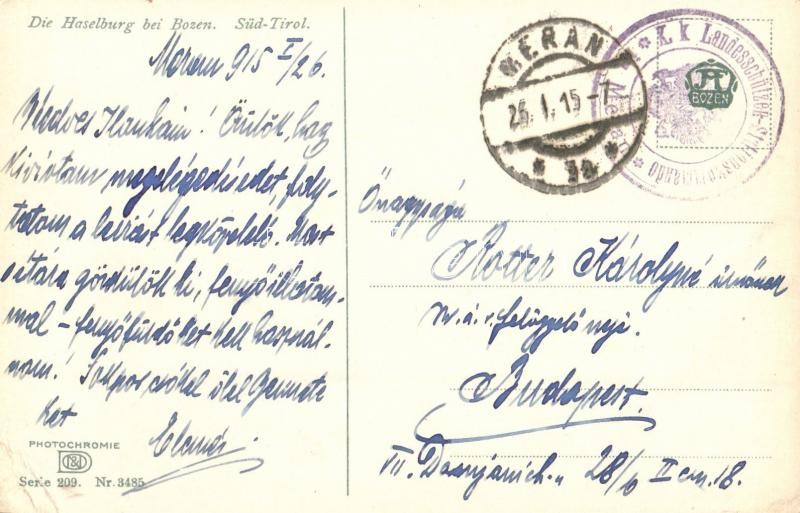 Die Haselburg bei Bozen. Süd-Tirol.
Meran 915 I/26.
Kedves Ilonkám! Örülök, hogy
kivívtam megelégedésedet, foly-
tatom a leírást legközelebb. Most
sétára gördülök ki, fenyőillatom-
mal - fenyőfürdőket kell használ-
nom! Sokszor csókol ölel Benneteket
Elemér
PHOTOCHROMIE
Serie 209. Nr. 3485.
MERAN
26. I. 15 - 7
* 3a *
K k Landesschützen
Meran
BOZEN
Őnagysága
Rotter Károlyné úrnőnek
m. á. v. felügyelő neje.
Budapest.
VII. Damjanich u. 28/b II em. 18.